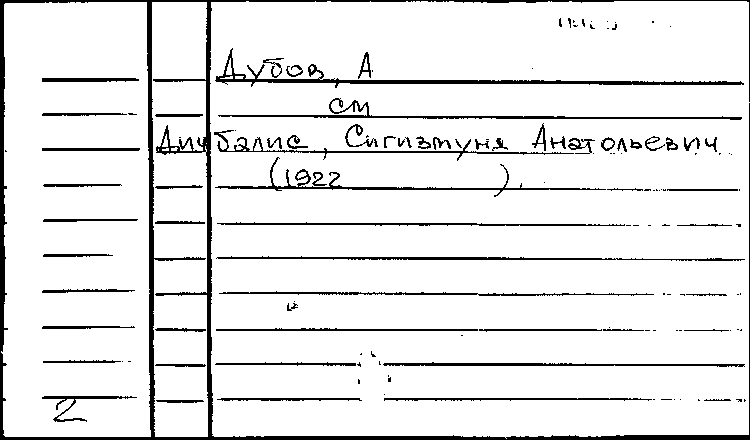 Дубов, А
см
Дичбалис, Сигизмунд Анатольевич
(1922 ).
2